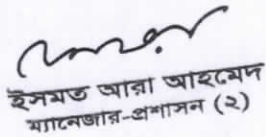 ইসমত আরা আহমেদ
ম্যানেজার-প্রশাসন (২)